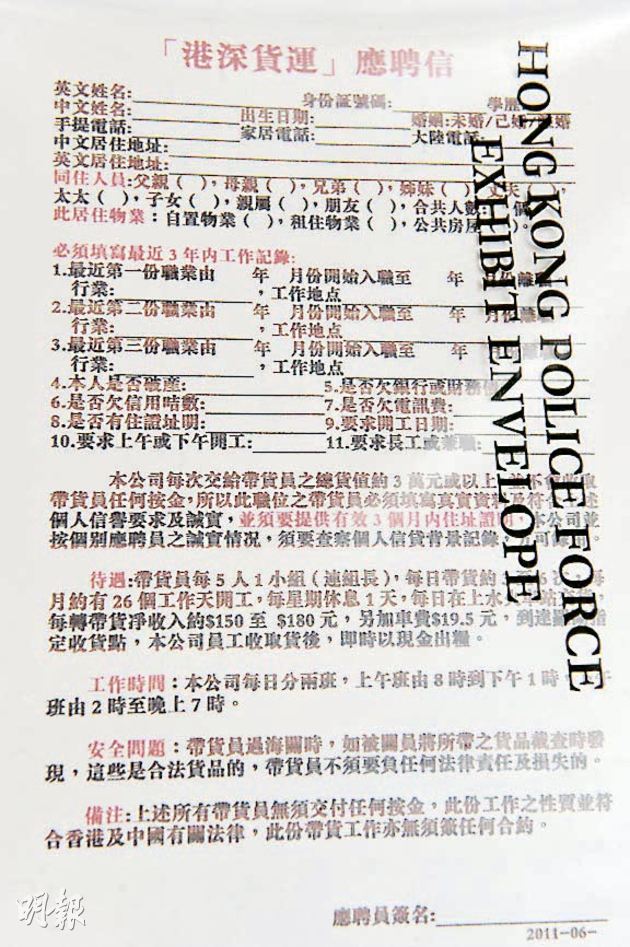 「港深貨運」應聘信
英文姓名: 身份証號碼: 學歷
中文姓名: 出生日期: 婚姻:未婚/己婚/ 婚
手提電話: 家居電話: 大陸電話:
中文居住地址:
英文居住地址:
同住人員:父親( ),母親( ),兄弟( ),姊妹( ),丈夫( ),
太太( ),子女( ),親屬( ),朋友( ),合共人數: 個
此居住物業:自置物業( ),租住物業( ),公共房屋( )。
必須填寫最近3年内工作記錄:
1.最近第一份職業由 年 月份開始入職至 年 月份離
行業: ,工作地点
2.最近第二份職業由 年 月份開始入職至 年 月份離
行業: ,工作地点
3.最近第三份職業由 年 月份開始入職至 年 月份離
行業: ,工作地点
4.本人是否破産: 5.是否欠銀行或財務
6.是否欠信用咭數: 7.是否欠電訊費:
8.是否有住證址明: 9.要求開工日期:
10.要求上午或下午開工: 11.要求長工或兼職:
本公司每次交給帶貨員之總貨值約3萬元或以上, 並不會收取
帶貨員任何按金,所以此職位之帶貨員必須填寫真實資料及符合 述
個人信譽要求及誠實,並須要提供有效3個月内住址證明,本公司並
按個别應聘員之誠實情况,須要查察個人信貸背景記錄,方可
待遇:帶貨員每5人1小組(連組長),每日帶貨約 至6次,每
月約有26個工作天開工,每星期休息1天,每日在上水火車站
每轉帶貨凈收入約$150至 $180元,另加車費$19.5元,到達 指
定收貨點,本公司員工收取貨後,即時以現金出糧。
工作時間:本公司每日分兩班,上午班由8時到下午1時, 午
班由2時至晚上7時。
安全問題:帶貨員過海關時,如被關員將所帶之貨品截查時發
現,這些是合法貨品的,帶貨員不須要負任何法律責任及損失的。
備注:上述所有帶貨員無須交付任何按金,此份工作之性質並符
合香港及中國有關法律,此份帶貨工作亦無須簽任何合約。
應聘員簽名:
2011-06-
HONG KONG POLICE FORCE
EXHIBIT ENVELOPE
明報